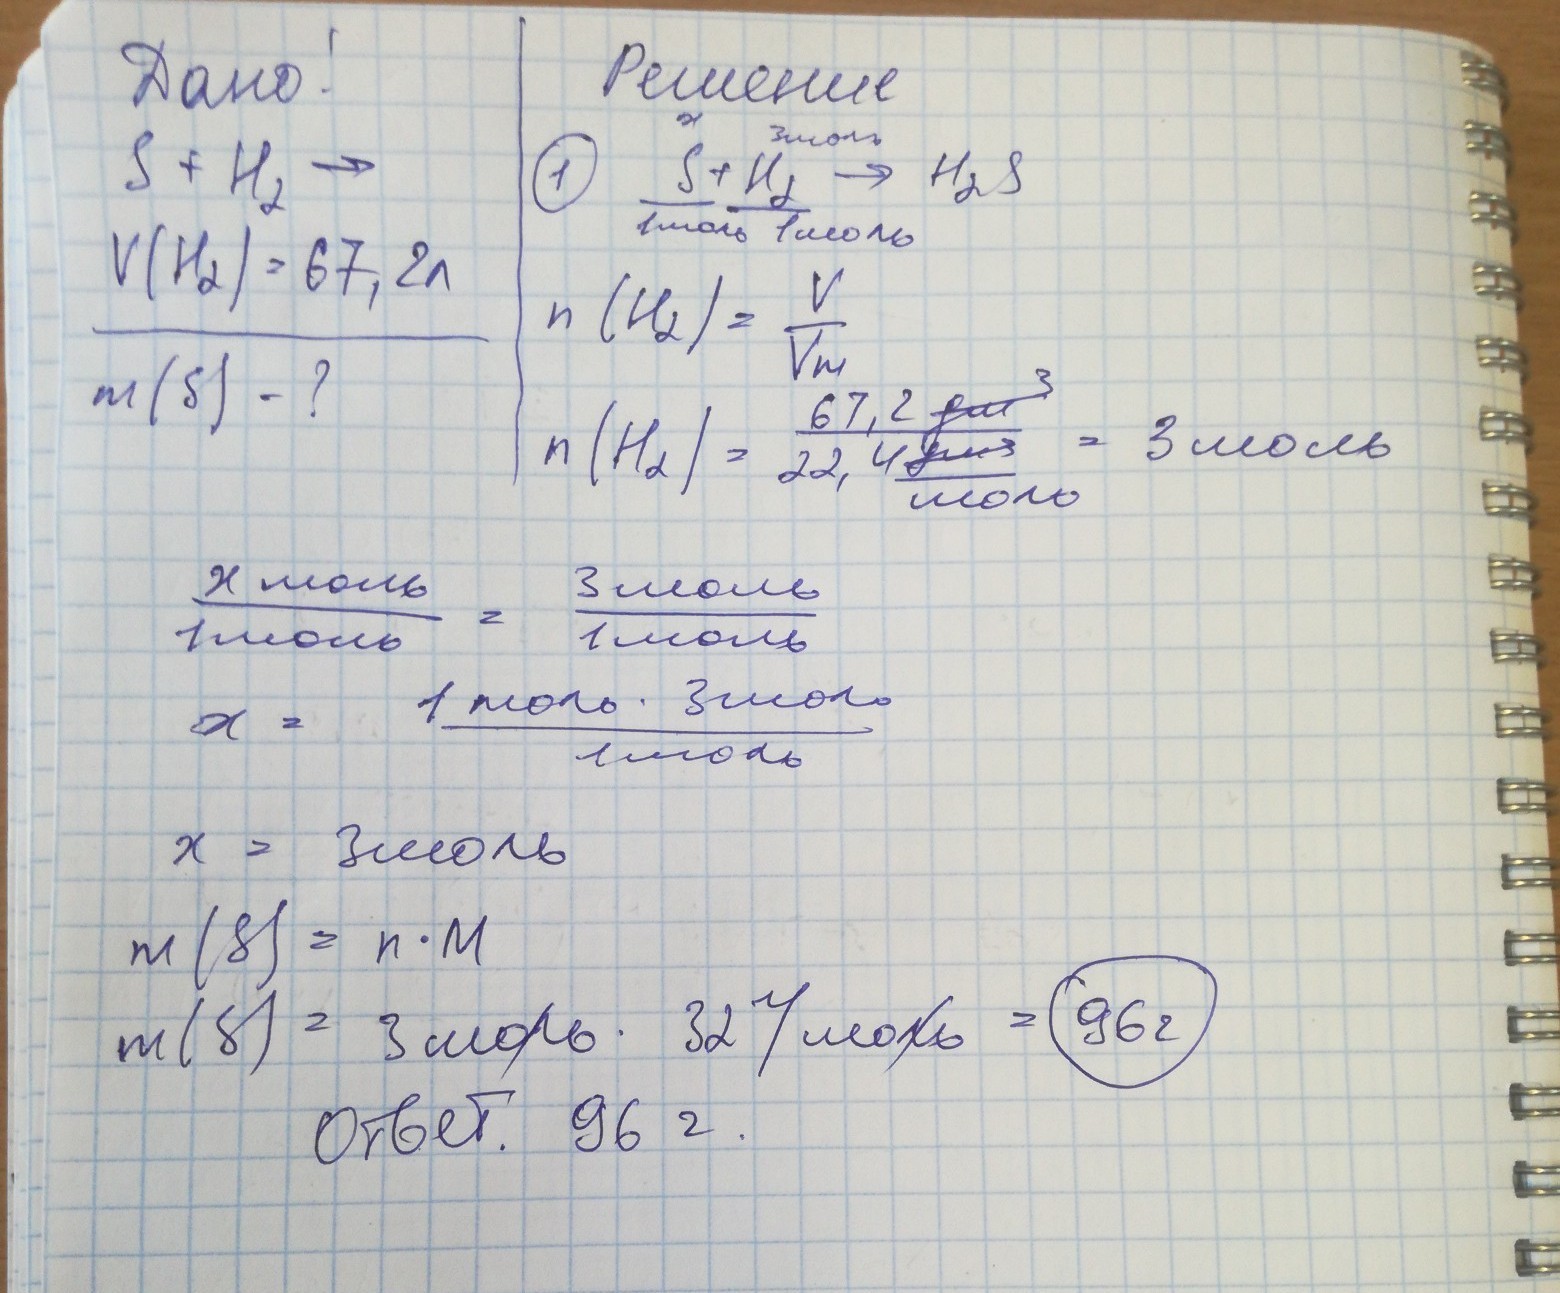 Дано:
S + H₂ →
V(H₂) = 67,2л
m(S) - ?
Решение
x 3моль
① S + H₂ → H₂S
1моль 1моль
n(H₂) = V/Vm
n(H₂) = 67,2 дм³ / 22,4 дм³/моль = 3 моль
x моль / 1моль = 3моль / 1моль
x = 1 моль · 3моль / 1моль
x = 3моль
m(S) = n · M
m(S) = 3моль · 32 г/моль = 96г
Ответ. 96 г.